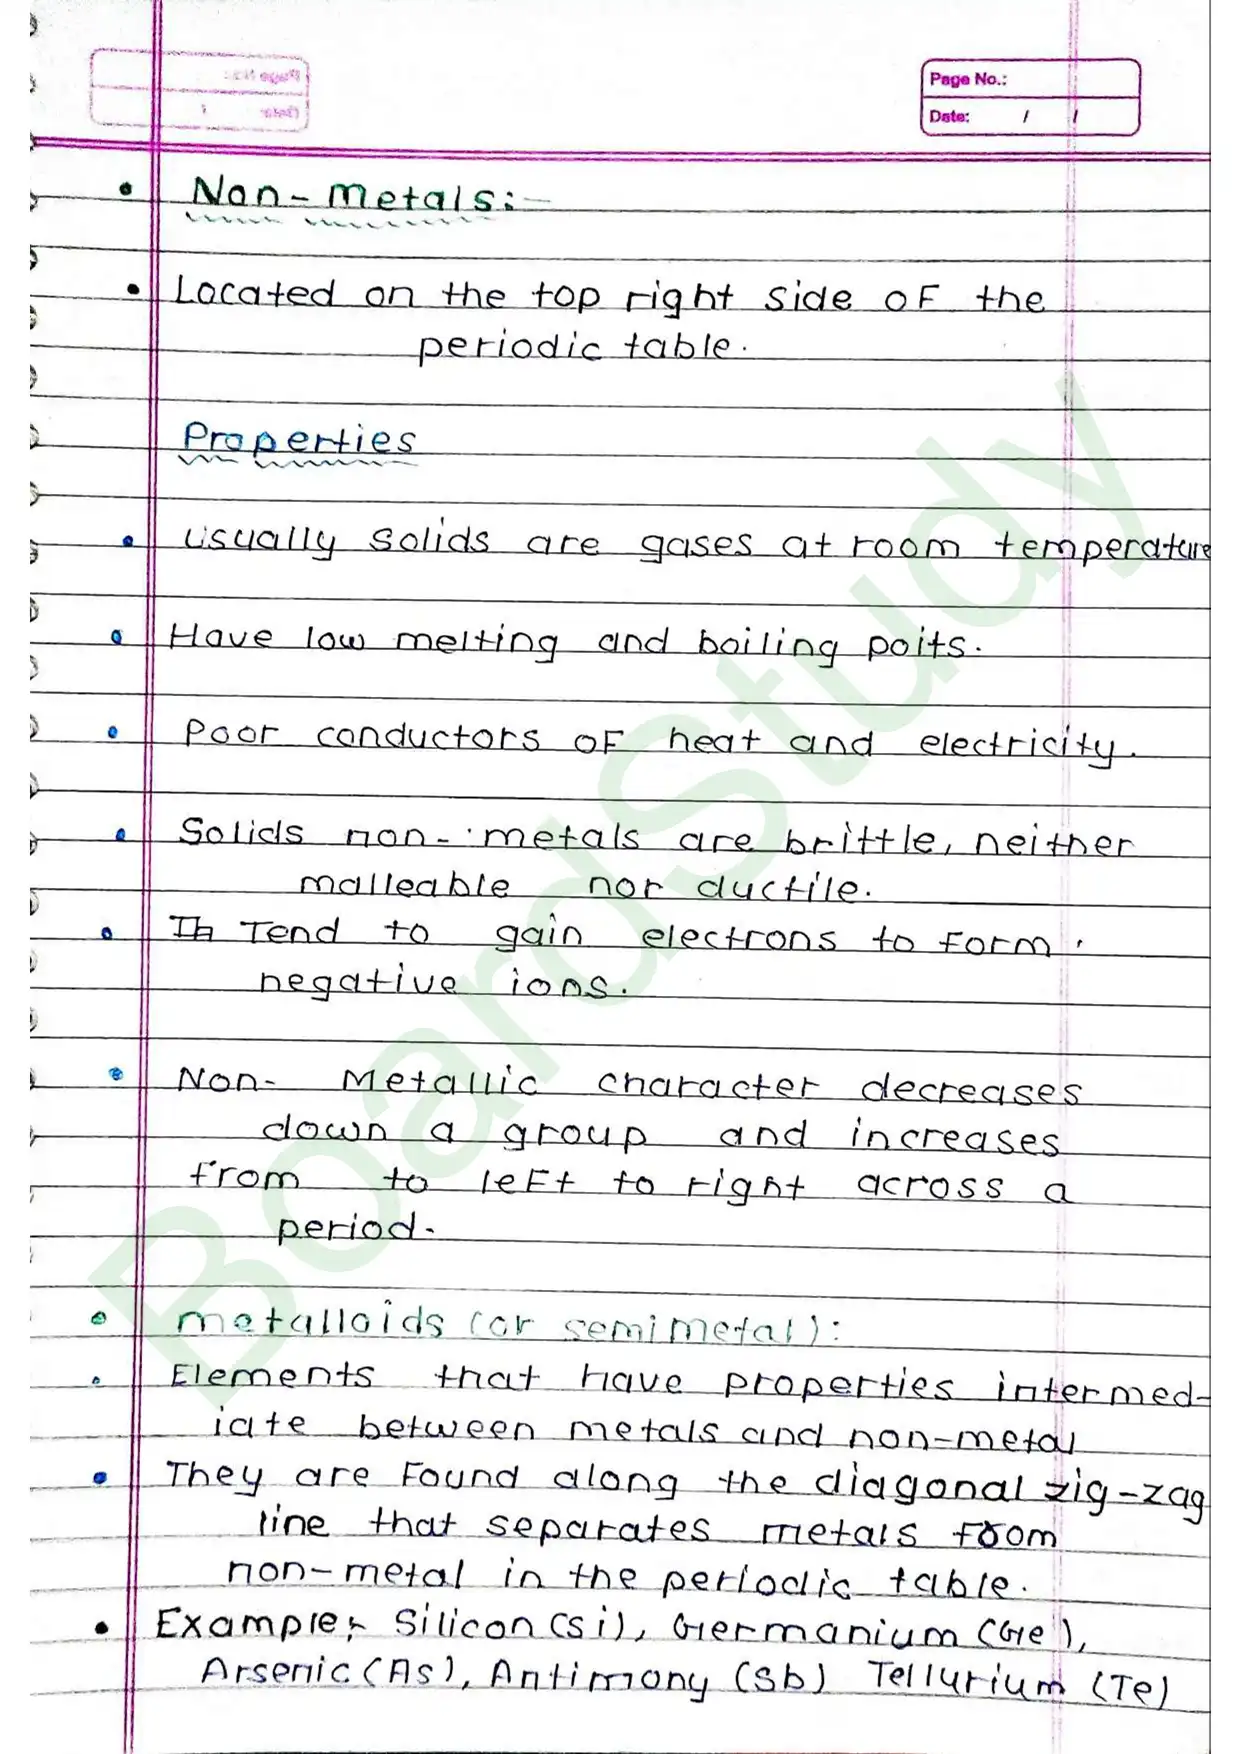 Page No.:
Date: / /
• Non-Metals:-
• Located on the top right side of the
periodic table.
Properties
• Usually solids are gases at room temperature
• Have low melting and boiling poits.
• Poor conductors of heat and electricity.
• Solids non-metals are brittle, neither
malleable nor ductile.
• Tend to gain electrons to form
negative ions.
• Non-Metallic character decreases
down a group and increases
from to left to right across a
period.
• metalloids (or semimetal):
• Elements that have properties intermed-
iate between metals and non-metal
• They are Found along the diagonal zig-zag
line that separates metals from
non-metal in the periodic table.
• Example:- Silicon (Si), Germanium (Ge),
Arsenic (As), Antimony (Sb) Tellurium (Te)
BoardStudy